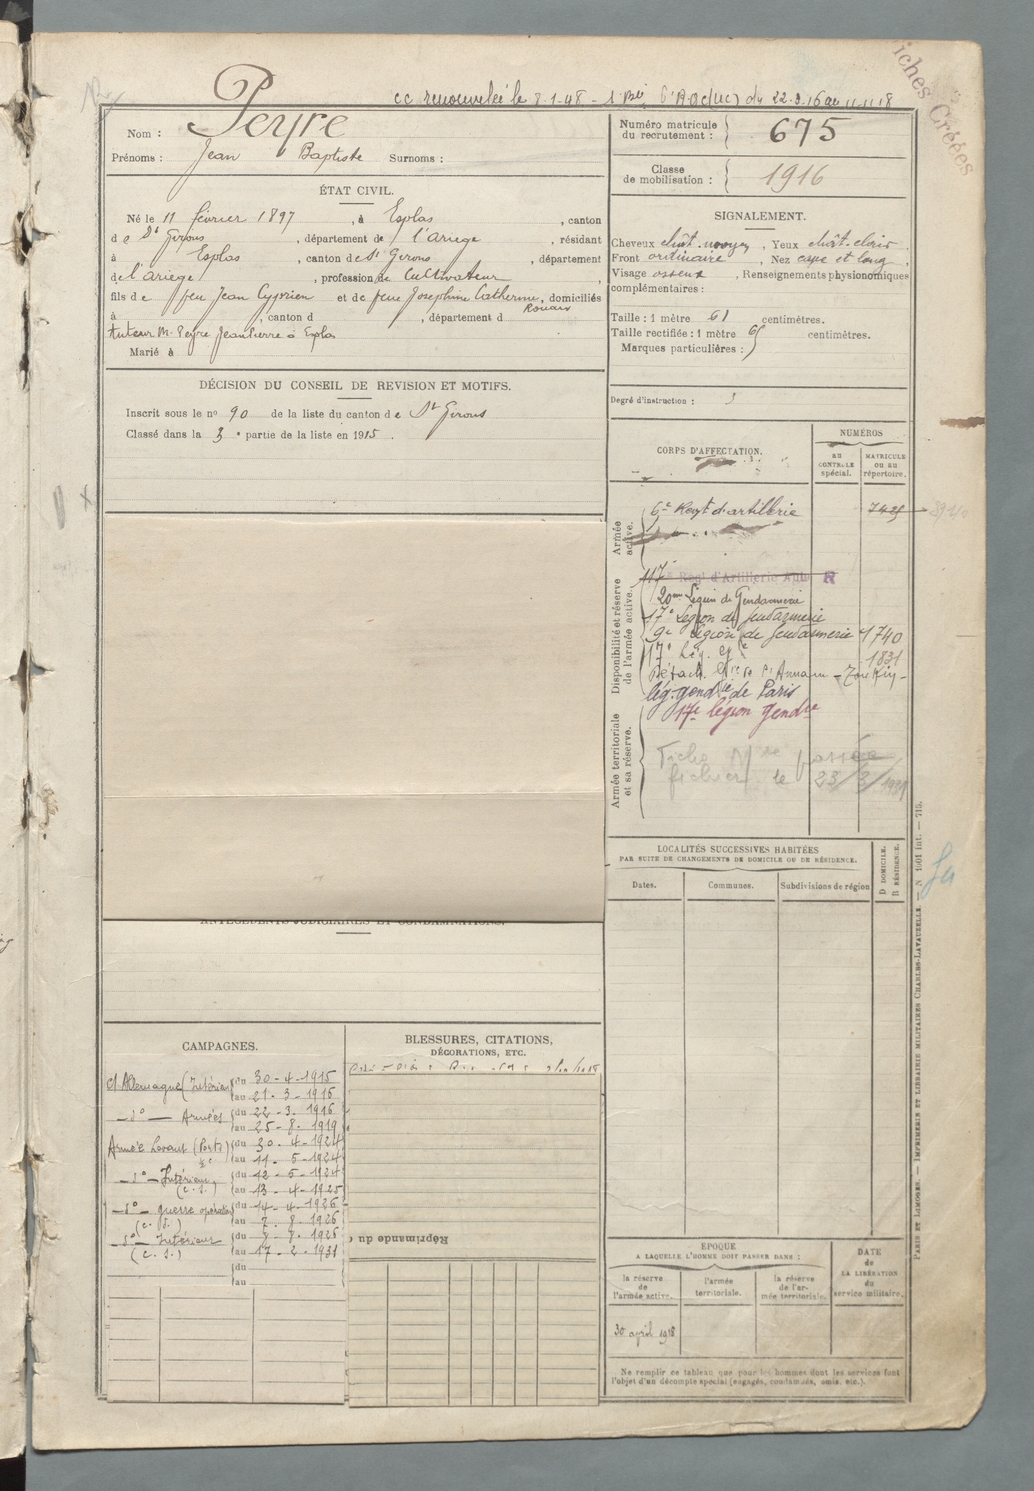 cc renouvelée le 8-1-48 - 1 du 22.3.16 au 11.11.18
Fiches Créées
Nom : Peyre
Prénoms : Jean Baptiste Surnoms :
Numéro matricule du recrutement : 675
Classe de mobilisation : 1916
ÉTAT CIVIL.
Né le 11 février 1897, à Esplas, canton
de St Girons, département de l'Ariège, résidant
à Esplas, canton de St Girons, département
de l'Ariège, profession de Cultivateur
fils de feu Jean Cyprien et de feue Joséphine Catherine, domiciliés
Rouaix
à , canton d , département d
tuteur M. Peyre Jean Pierre à Esplas
Marié à
SIGNALEMENT.
Cheveux chât. moyen, Yeux chât. clair
Front ordinaire, Nez cave et long,
Visage osseux, Renseignements physionomiques
complémentaires :
Taille : 1 mètre 61 centimètres.
Taille rectifiée : 1 mètre 65 centimètres.
Marques particulières :
Degré d'instruction : 3
DÉCISION DU CONSEIL DE REVISION ET MOTIFS.
Inscrit sous le no 90 de la liste du canton de St Girons
Classé dans la 3e partie de la liste en 1915.
CORPS D'AFFECTATION.
NUMÉROS
AU CONTROLE spécial.
MATRICULE OU AU répertoire.
Armée active.
6e Regt d'artillerie 7425
Disponibilité et réserve de l'armée active.
117e Regt d'Artillerie Auto R
20me Légion de Gendarmerie
17e Légion de Gendarmerie
9e Légion de Gendarmerie 1740
17e Lég. Gie 1831
Détacht Gie de l'Annam -
lég. gendie de Paris
17e légion Gendie
Armée territoriale et sa réserve.
Fiche Mle passée
fichier le 23/3/1931
LOCALITÉS SUCCESSIVES HABITÉES
PAR SUITE DE CHANGEMENTS DE DOMICILE OU DE RÉSIDENCE.
Dates. Communes. Subdivisions de région
D DOMICILE. R RÉSIDENCE.
ANTÉCÉDENTS JUDICIAIRES ET CONDAMNATIONS.
CAMPAGNES.
Ct Allemagne (Intérieur) du 30-4-1915
au 21-3-1916
- do - Armées du 22-3-1916
au 25-8-1919
Armée Levant (Ports) du 30-4-1924
au 11-5-1924
- do - Intérieur du 12-5-1924
(c.s.) au 13-4-1925
- do - guerre opération du 14-4-1926
au 7-8-1926
- do - Intérieur du 8-8-1926
(c.s.) au 17-2-1931
du
au
BLESSURES, CITATIONS,
DÉCORATIONS, ETC.
Réprimande du
ÉPOQUE
A LAQUELLE L'HOMME DOIT PASSER DANS :
la réserve de l'armée active.
l'armée territoriale.
la réserve de l'armée territoriale.
DATE de LA LIBÉRATION du service militaire.
30 avril 1918
Ne remplir ce tableau que pour les hommes dont les services font
l'objet d'un décompte spécial (engagés, condamnés, omis, etc.).
PARIS ET LIMOGES. — IMPRIMERIE ET LIBRAIRIE MILITAIRES CHARLES-LAVAUZELLE. — N 1601 int. — 715.